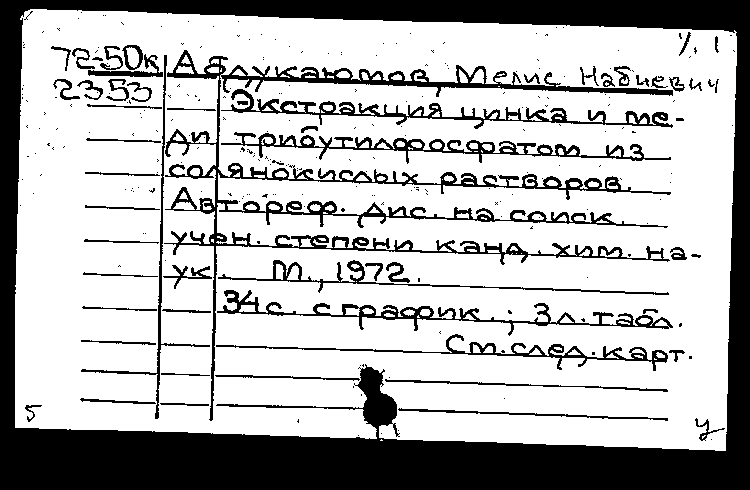 У. 1
72-50к Абдукаюмов, Мелис Набиевич
2353 Экстракция цинка и ме-
ди трибутилфосфатом из
солянокислых растворов.
Автореф. дис. на соиск.
учен. степени канд. хим. на-
ук. М., 1972.
34 с. с график.; 3 л. табл.
См. след. карт.
5 у